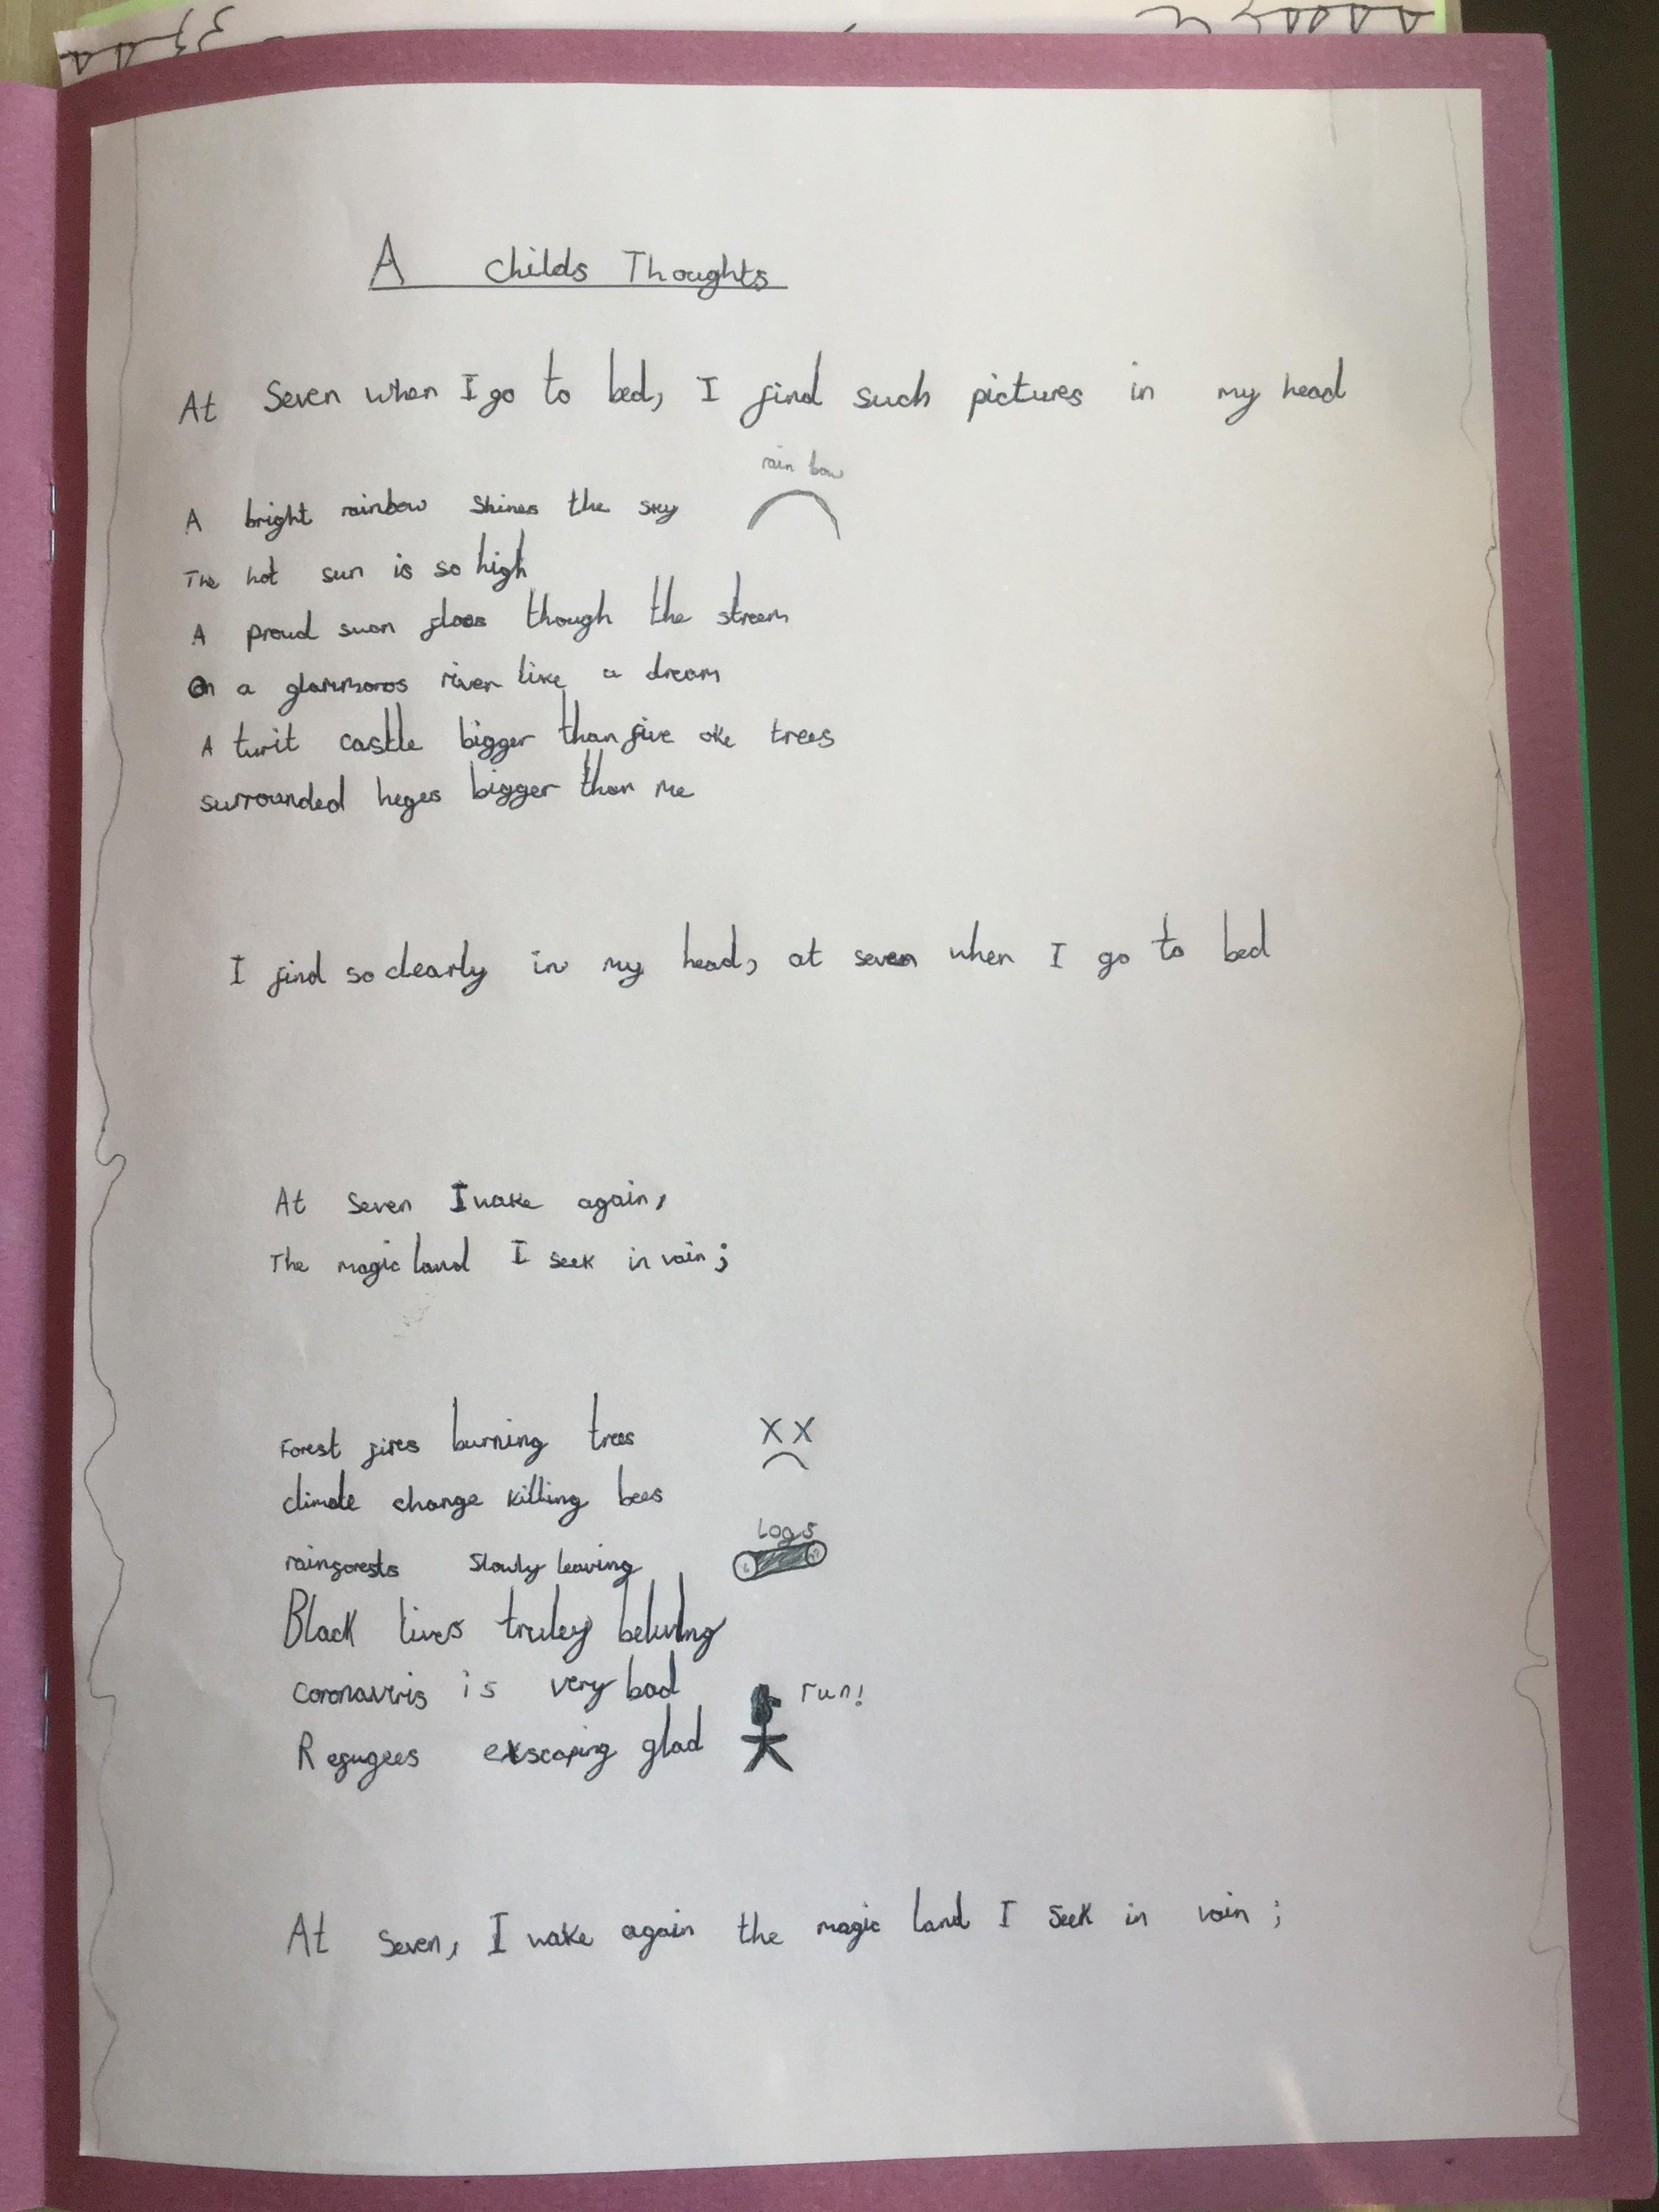 A Childs Thoughts
At Seven when I go to bed, I find such pictures in my head
rain bow
A bright rainbow Shines the sky
The hot sun is so high
A proud swan floas though the stream
On a glammoros river like a dream
A turit castle bigger than five oke trees
surrounded heges bigger than me
I find so clearly in my head, at seven when I go to bed
At Seven I wake again,
The magic land I seek in vain;
Forest fires burning trees
climate change killing bees
Logs
rainforests Slowly leaving
Black lives truley
coronaviris is very bad
run!
Refugees exscaping glad
At Seven, I wake again the magic land I Seek in vain;